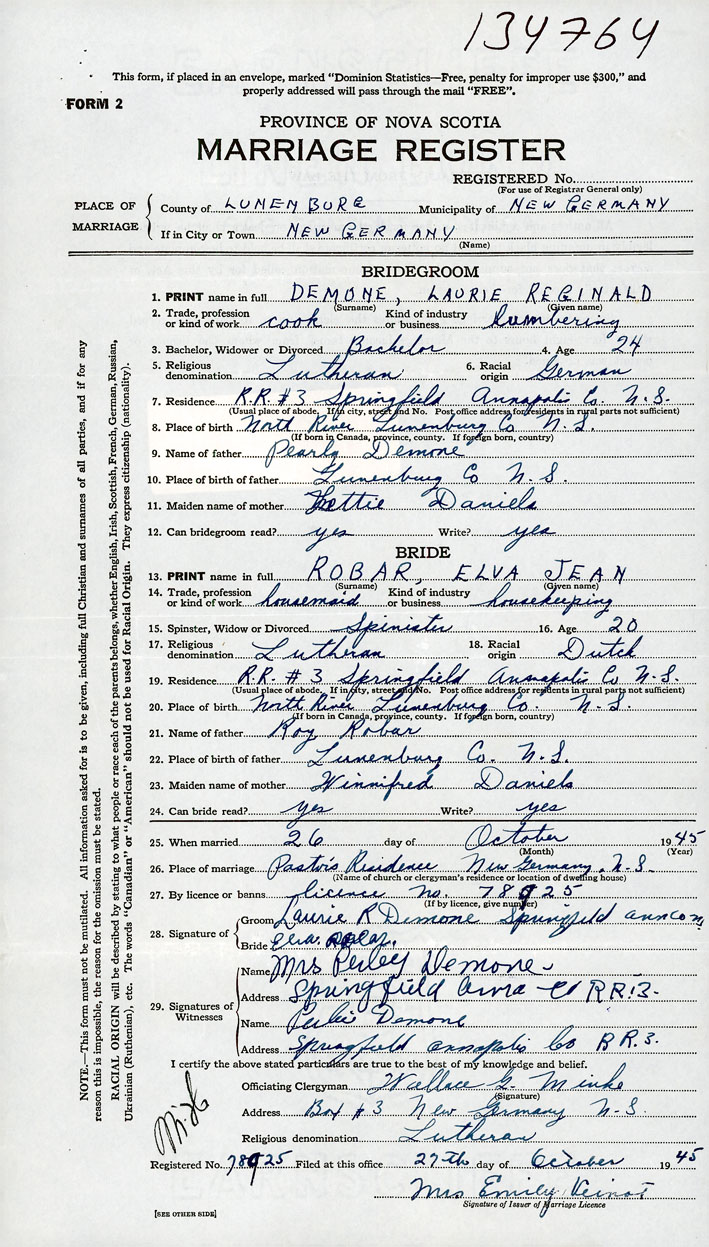 134764
This form, if placed in an envelope, marked “Dominion Statistics—Free, penalty for improper use $300,” and
properly addressed will pass through the mail “FREE”.
FORM 2
PROVINCE OF NOVA SCOTIA
MARRIAGE REGISTER
REGISTERED No.
(For use of Registrar General only)
PLACE OF MARRIAGE
County of LUNENBURG Municipality of NEW GERMANY
If in City or Town NEW GERMANY
(Name)
BRIDEGROOM
1. PRINT name in full DEMONE, LAURIE REGINALD
(Surname) (Given name)
2. Trade, profession or kind of work cook Kind of industry or business lumbering
3. Bachelor, Widower or Divorced Bachelor 4. Age 24
5. Religious denomination Lutheran 6. Racial origin German
7. Residence R.R. #3 Springfield Annapolis Co. N.S.
(Usual place of abode. If in city, street and No. Post office address for residents in rural parts not sufficient)
8. Place of birth North River Lunenburg Co. N.S.
(If born in Canada, province, county. If foreign born, country)
9. Name of father Pearly Demone
10. Place of birth of father Lunenburg Co N.S.
11. Maiden name of mother Hettie Daniels
12. Can bridegroom read? yes Write? yes
BRIDE
13. PRINT name in full ROBAR, ELVA JEAN
(Surname) (Given name)
14. Trade, profession or kind of work housemaid Kind of industry or business housekeeping
15. Spinster, Widow or Divorced Spinister 16. Age 20
17. Religious denomination Lutheran 18. Racial origin Dutch
19. Residence R.R. #3 Springfield Annapolis Co N.S.
(Usual place of abode. If in city, street and No. Post office address for residents in rural parts not sufficient)
20. Place of birth North River Lunenburg Co. N.S.
(If born in Canada, province, county. If foreign born, country)
21. Name of father Roy Robar
22. Place of birth of father Lunenburg Co. N.S.
23. Maiden name of mother Winnifred Daniels
24. Can bride read? yes Write? yes
25. When married 26 day of October 1945
(Month) (Year)
26. Place of marriage Pastor's Residence New Germany, N.S.
(Name of church or clergyman's residence or location of dwelling house)
27. By licence or banns licence no. 78925
(If by licence, give number)
28. Signature of
Groom Laurie R Demone Springfield
Bride
29. Signatures of Witnesses
Name Mrs Perley Demone
Address Springfield Anna Co RR.3.
Name Demone
Address Springfield Annapolis Co R.3.
I certify the above stated particulars are true to the best of my knowledge and belief.
Officiating Clergyman Wallace G. Minke
(Signature)
Address Box #3 New Germany N.S.
Religious denomination Lutheran
Registered No. 78925 Filed at this office 27th day of October 1945
Mrs Emily Veinot
Signature of Issuer of Marriage Licence
[SEE OTHER SIDE]
NOTE.—This form must not be mutilated. All information asked for is to be given, including full Christian and surnames of all parties, and if for any
reason this is impossible, the reason for the omission must be stated.
RACIAL ORIGIN will be described by stating to what people or race each of the parents belongs, whether English, Irish, Scottish, French, German, Russian,
Ukrainian (Ruthenian), etc. The words “Canadian” or “American” should not be used for Racial Origin. They express citizenship (nationality).